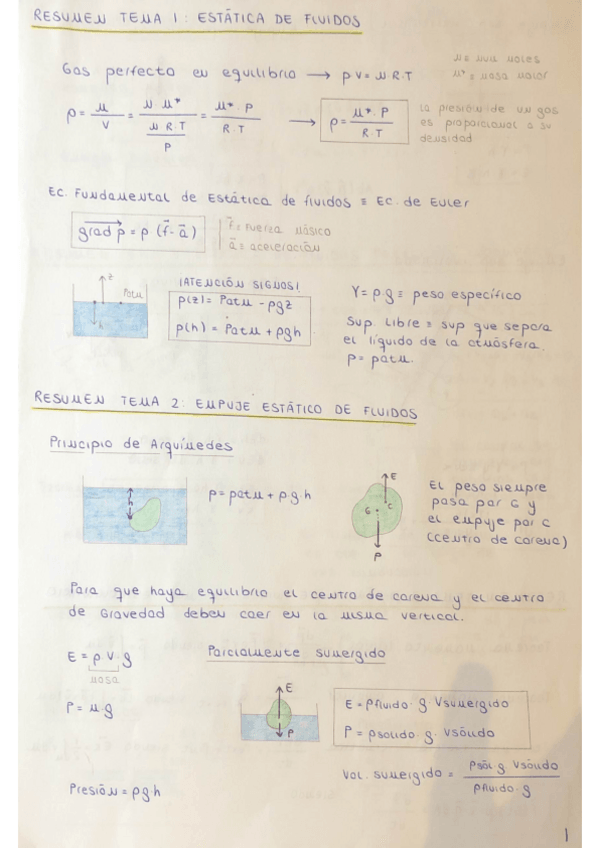 RESUMEN TEMA 1: ESTÁTICA DE FLUIDOS
Gas perfecto en equilibrio → pV = N·R·T
N = num moles
M* = masa molar
ρ = M/V = N·M*/(N·R·T/P) = M*·P/(R·T) → ρ = M*·P/(R·T)
La presión de un gas
es proporcional a su
densidad
Ec. Fundamental de Estática de fluidos ≡ Ec. de Euler
grad p = ρ (f - a)
f = Fuerza Másica
a = aceleración
z
Patm
h
¡ATENCIÓN SIGNOS!
p(z) = Patm - ρgz
p(h) = Patm + ρgh
γ = ρ·g ≡ peso específico
Sup. Libre ≡ sup que separa
el líquido de la atmósfera.
p = patm.
RESUMEN TEMA 2: EMPUJE ESTÁTICO DE FLUIDOS
Principio de Arquímedes
h
p = patm + ρ·g·h
E
G
C
P
El peso siempre
pasa por G y
el empuje por C
(centro de carena)
Para que haya equilibrio el centro de carena y el centro
de Gravedad deben caer en la misma vertical.
E = ρ·V·g
masa
P = M·g
Presión = ρg·h
Parcialmente sumergido
E
P
E = ρfluido·g·Vsumergido
P = ρsolido·g·Vsólido
Vol. sumergido = ρsól·g·Vsólido/(ρfluido·g)
1